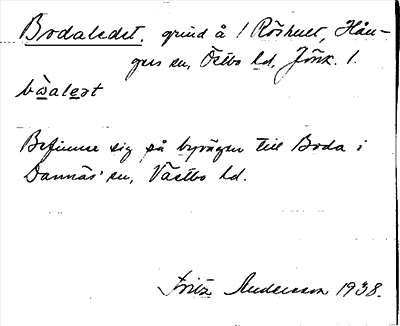 Bodaledet, grind å / Röshult, Hån-
gers sn, Östbo hd, Jönk. l.
bωalet
Befinner sig på byvägen till Boda i
Dannäs' sn, Västbo hd.
Fritz Andersson 1938.